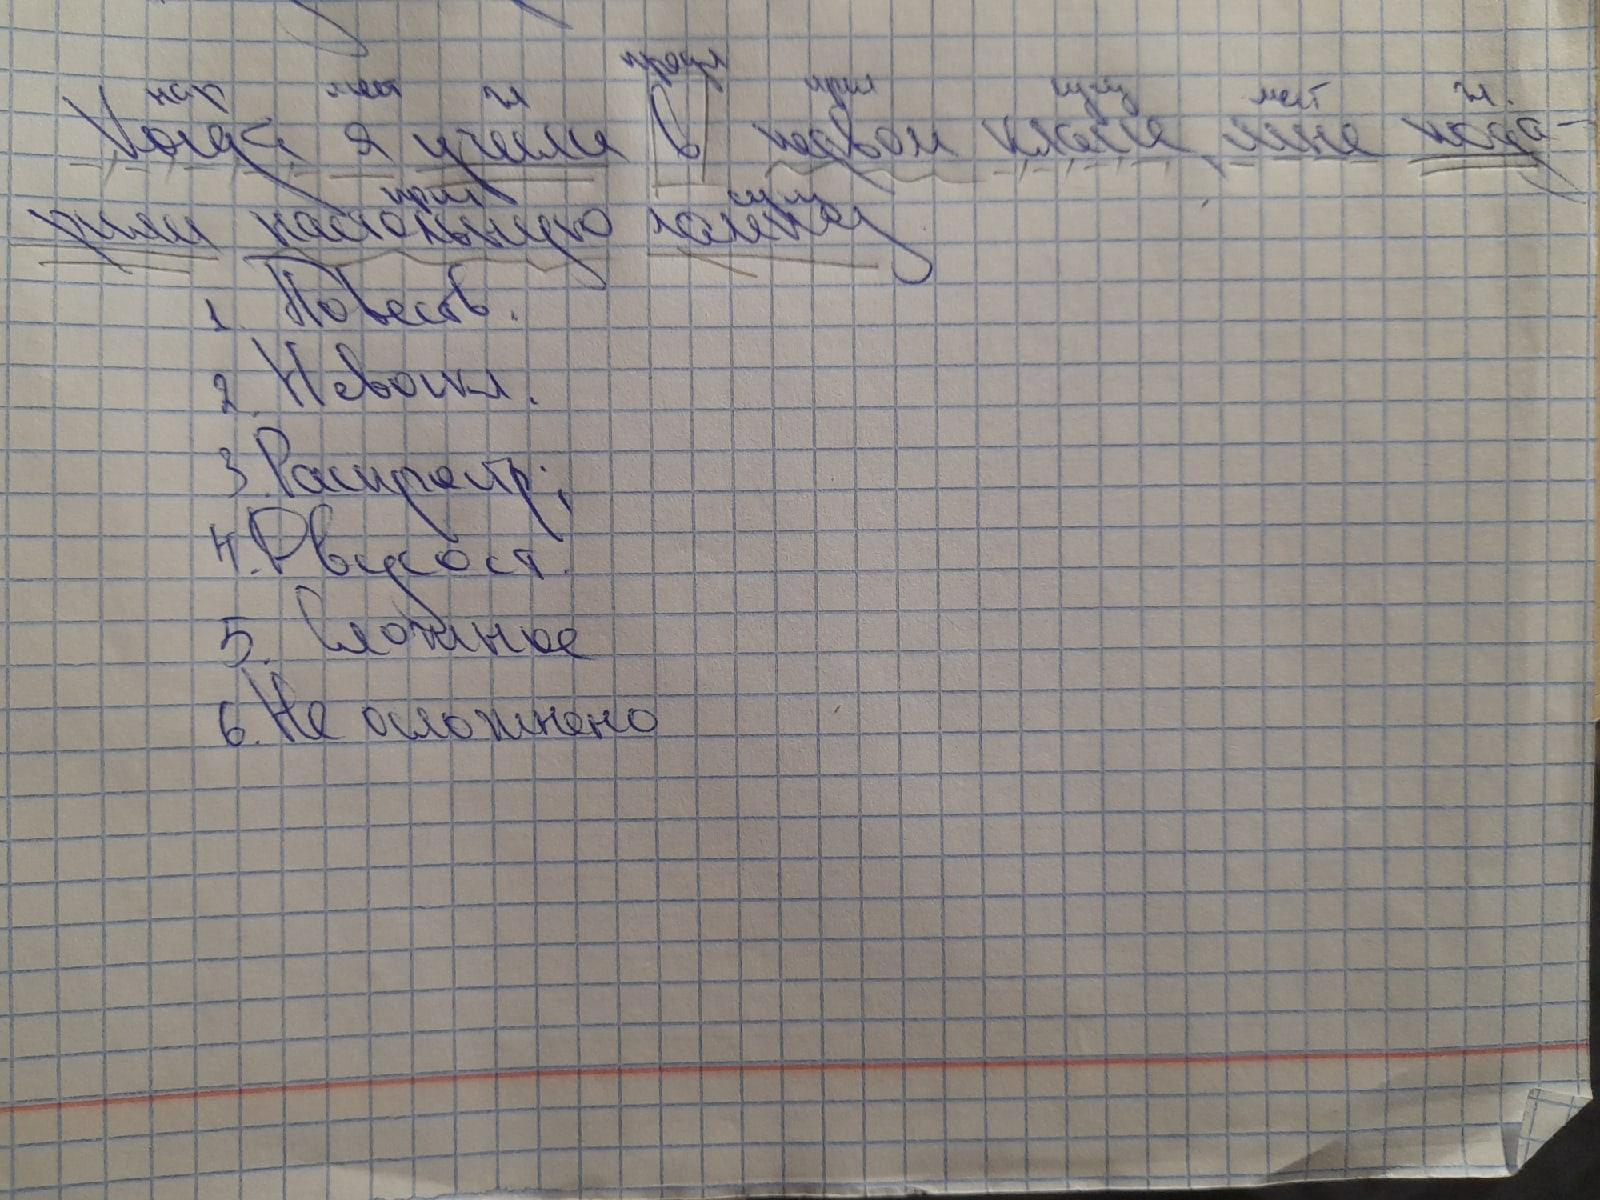 нар мест гл предл прил сущ мест гл.
Когда я учился в первом классе, мне пода-
прил сущ
рили настольную лампу.
1. Повеств.
2. Невоскл.
3. Распростр.
4. Двусост.
5. Сложное
6. Не осложнено